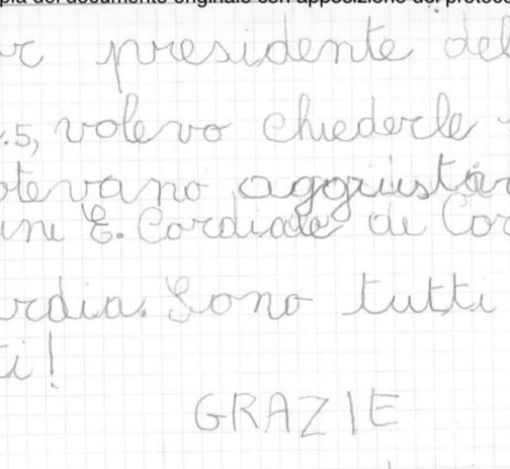 pia del documento originale con apposizione del protoc
presidente del
.5, volevo chiederle
otevano aggiustar
ini E. Cordiale di Cor
ordia. Sono tutti
ti!
GRAZIE